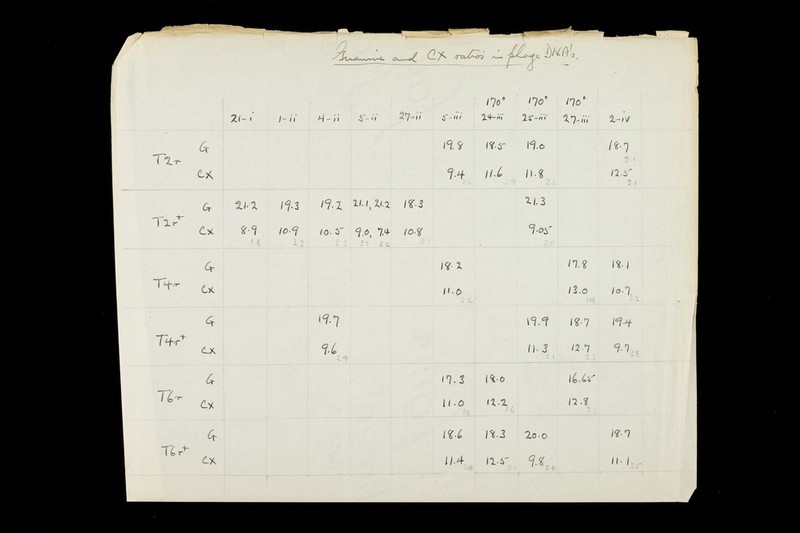 Guanine and CX ratios in phage DNA's.
170° 170° 170°
21-i 1-ii 4-ii 5-ii 27-ii 5-iii 24-iii 25-iii 27-iii 2-iv
G 19.8 18.5 19.0 18.7
T2r
CX 9.4 11.6 11.8 12.5
G 21.2 19.3 19.2 21.1, 21.2 18.3 21.3
T2r+
CX 8.9 10.9 10.5 9.0, 7.4 10.8 9.05
G 18.2 17.8 18.1
T4r
CX 11.0 13.0 10.7
G 19.7 19.9 18.7 19.4
T4r+
CX 9.6 11.3 12.7 9.7
G 17.3 18.0 16.65
T6r
CX 11.0 12.2 12.8
G 18.6 18.3 20.0 18.7
T6r+
CX 11.4 12.5 9.8 11.1